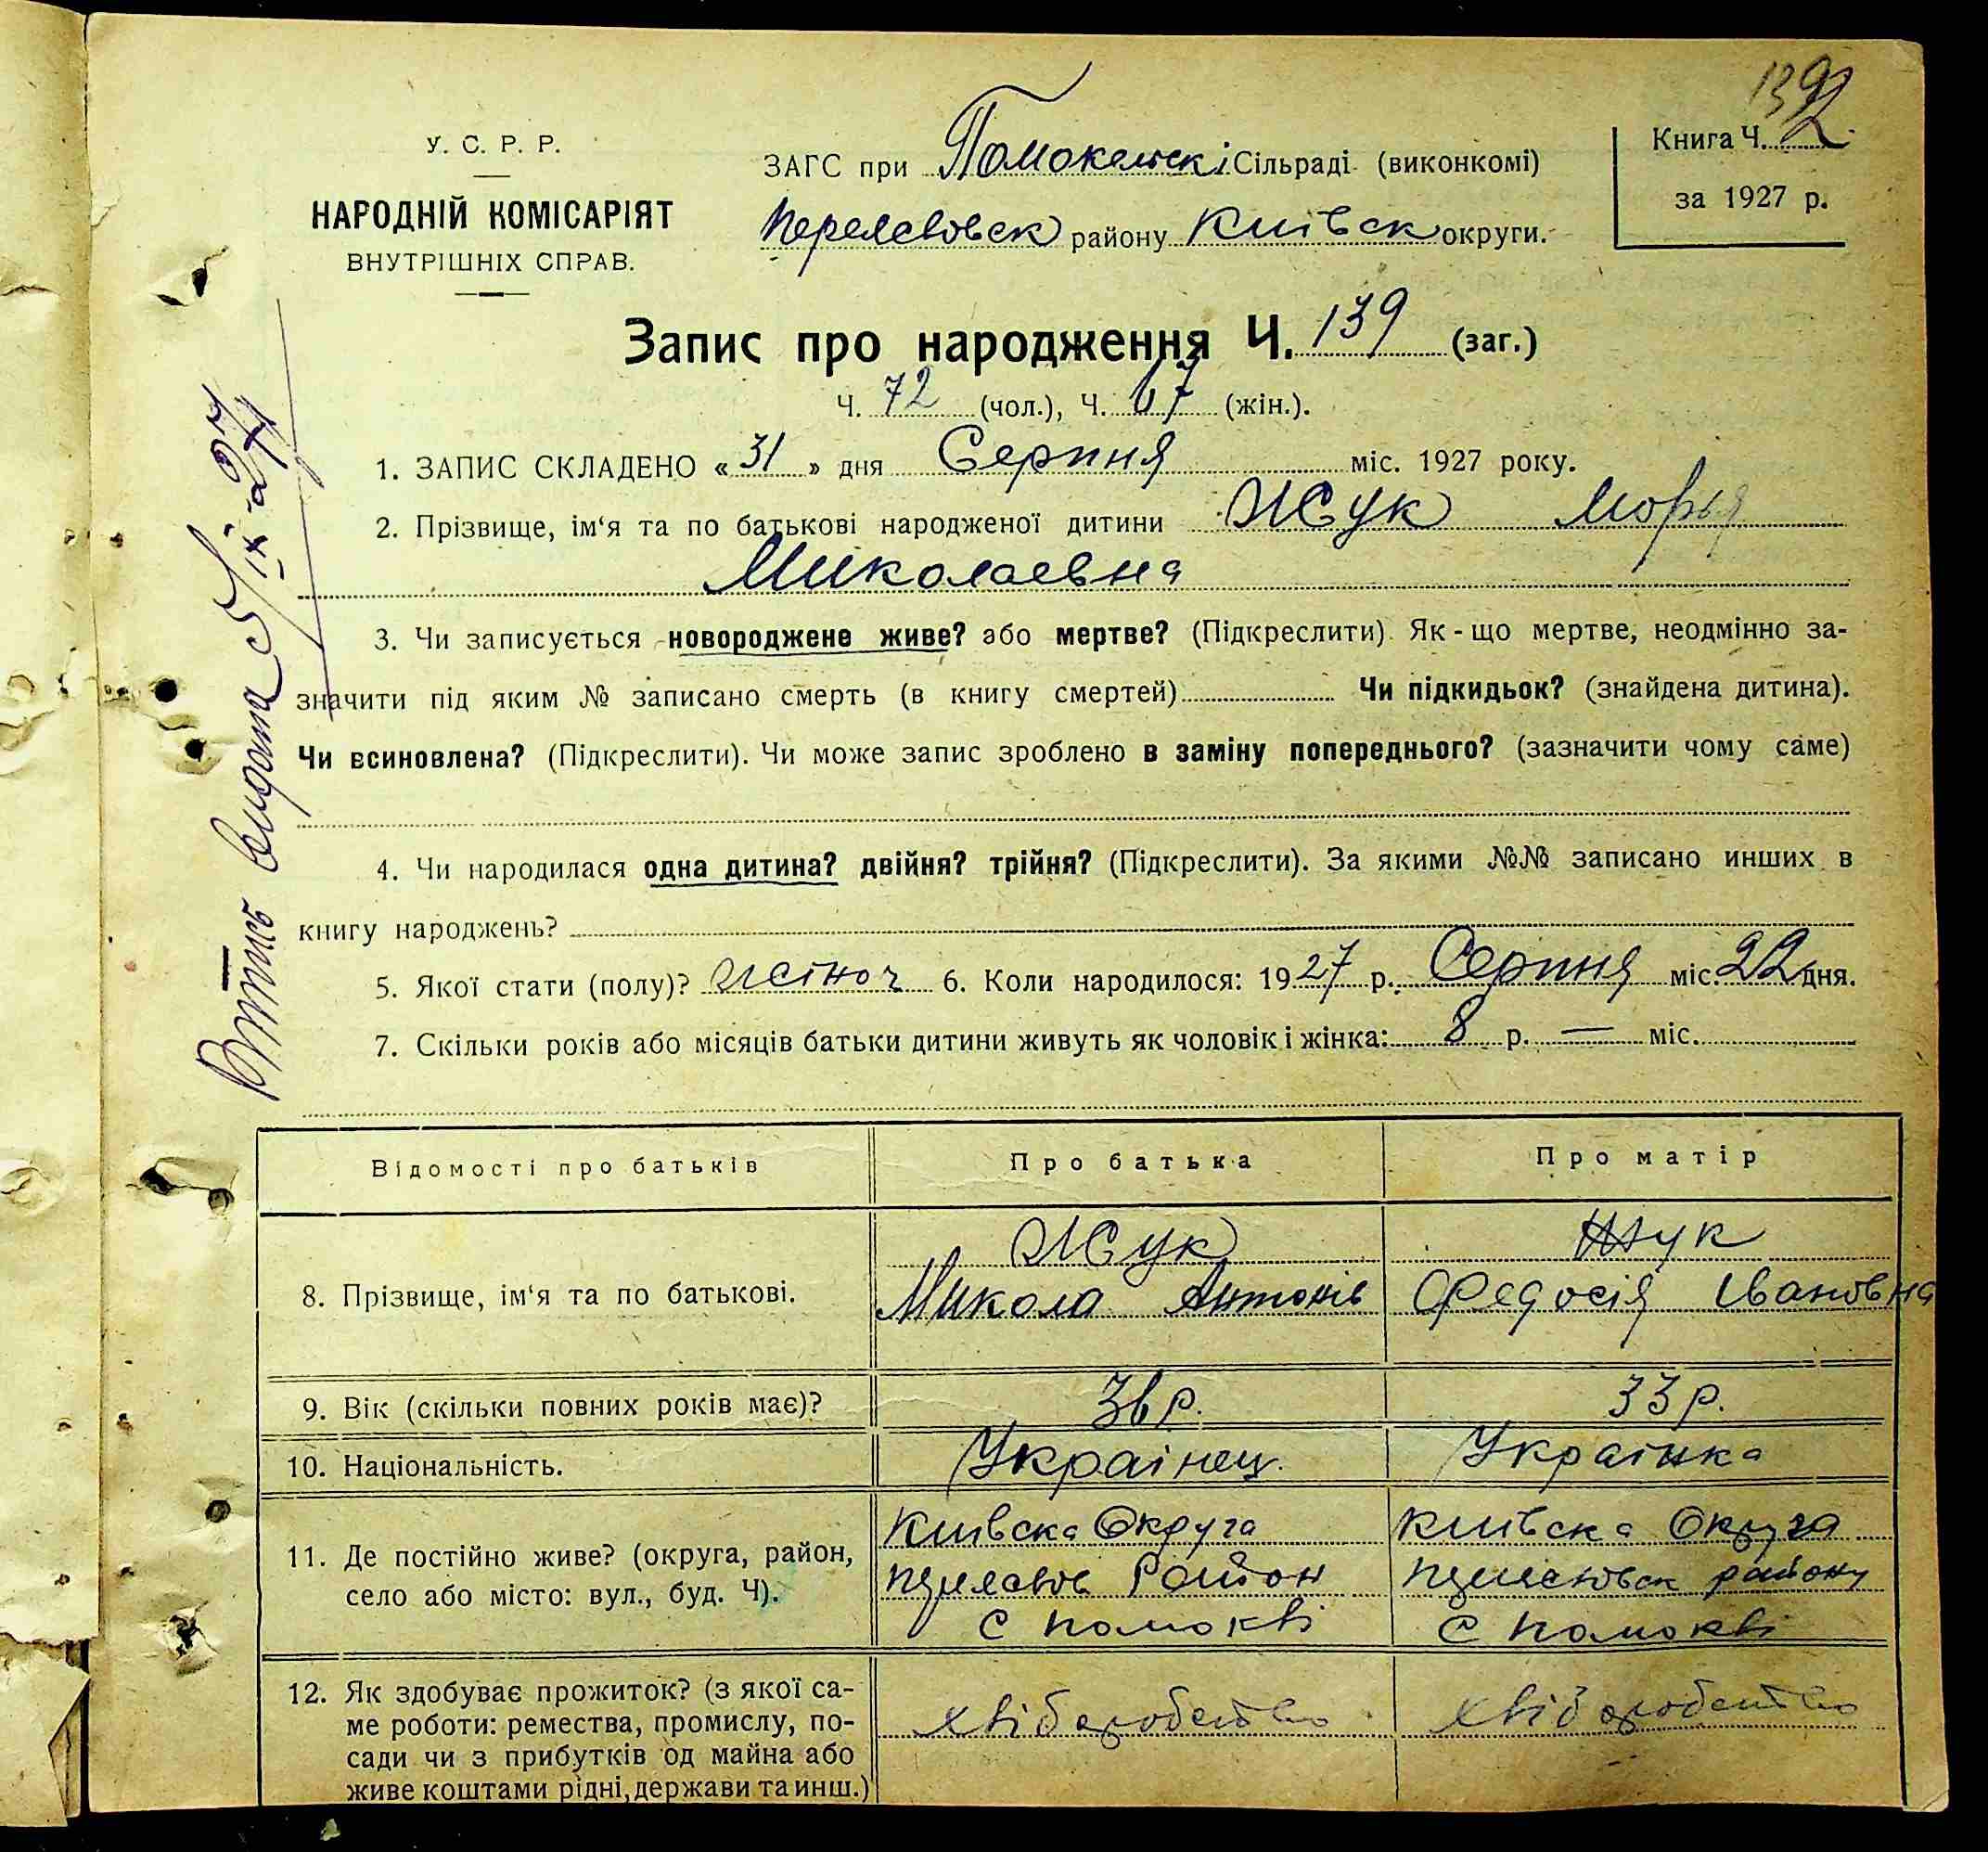 139
У. С. Р. Р.
НАРОДНІЙ КОМІСАРІЯТ
ВНУТРІШНІХ СПРАВ.
ЗАГС при Помокельскі Сільраді (виконкомі)
району Київск округи.
Книга Ч. 2
за 1927 р.
Запис про народження Ч. 139 (заг.)
Ч. 72 (чол.), Ч. 67 (жін.).
1. ЗАПИС СКЛАДЕНО «31» дня Серпня міс. 1927 року.
2. Прізвище, ім‘я та по батькові народженої дитини Жук Морья
Миколаевна
3. Чи записується новороджене живе? або мертве? (Підкреслити). Як-що мертве, неодмінно за-
значити під яким № записано смерть (в книгу смертей) Чи підкидьок? (знайдена дитина).
Чи всиновлена? (Підкреслити). Чи може запис зроблено в заміну попереднього? (зазначити чому саме)
4. Чи народилася одна дитина? двійня? трійня? (Підкреслити). За якими №№ записано инших в
книгу народжень?
5. Якої стати (полу)? жіноч 6. Коли народилося: 1927 р. Серпня міс. 22 дня.
7. Скільки років або місяців батьки дитини живуть як чоловік і жінка: 8 р. — міс.
Витись видана 5/IX-27
Відомості про батьків
Про батька
Про матір
8. Прізвище, ім‘я та по батькові.
Жук
Микола Антонів
Жук
Федосія Івановна
9. Вік (скільки повних років має)?
36 р.
33 р.
10. Національність.
Украінец.
Украінка
11. Де постійно живе? (округа, район,
село або місто: вул., буд. Ч).
Київска Округа
Район
С Помокві
Київска Округа
району
С Помокві
12. Як здобуває прожиток? (з якої са-
ме роботи: ремества, промислу, по-
сади чи з прибутків од майна або
живе коштами рідні, держави та инш.)
хліборобство
хліборобство